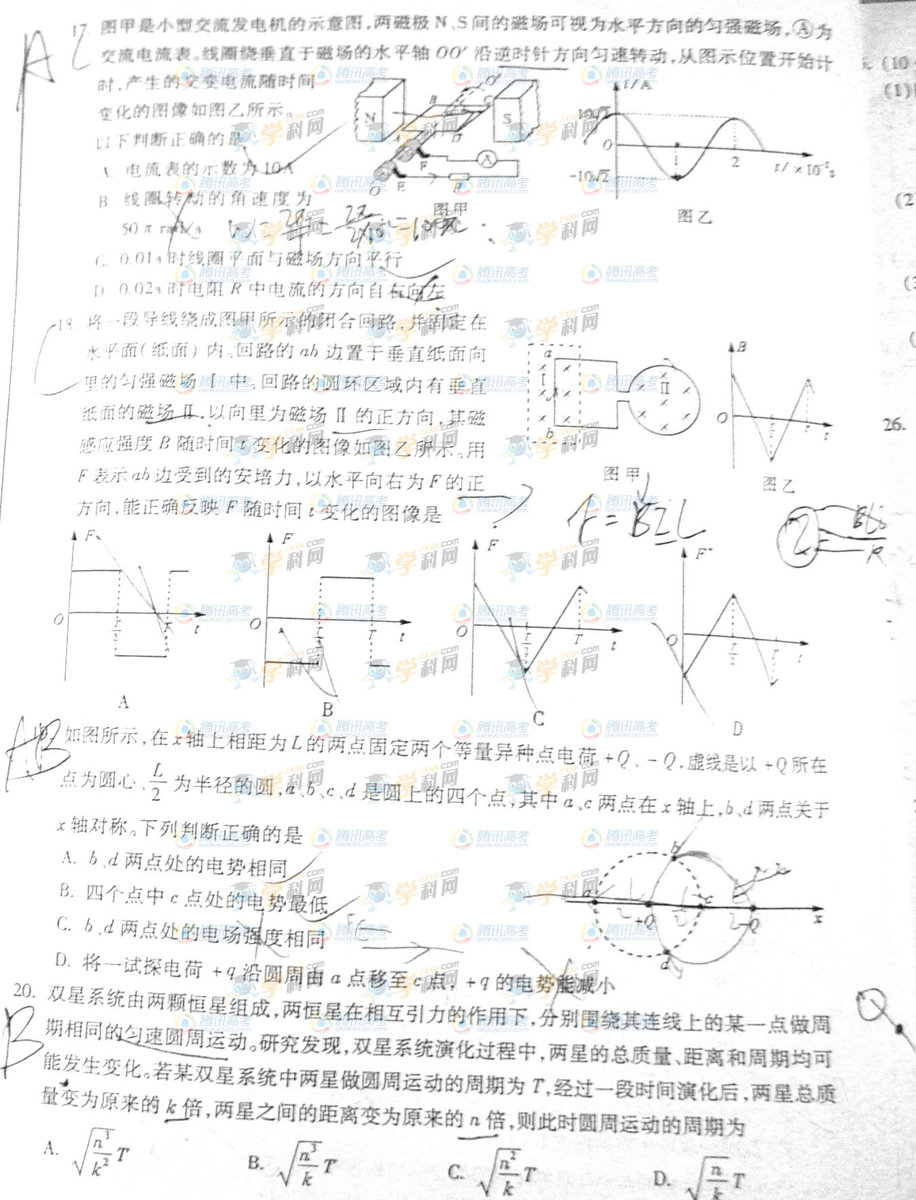 17. 图甲是小型交流发电机的示意图,两磁极N、S间的磁场可视为水平方向的匀强磁场,Ⓐ为
交流电流表。线圈绕垂直于磁场的水平轴OO′沿逆时针方向匀速转动,从图示位置开始计
时,产生的交变电流随时间
变化的图像如图乙所示。
以下判断正确的是
A. 电流表的示数为10A
B. 线圈转动的角速度为
50π rad/s
C. 0.01s时线圈平面与磁场方向平行
D. 0.02s时电阻R中电流的方向自右向左
N
S
A
E
F
R
图甲
i/A
10√2
O
-10√2
1
2
t/×10⁻²s
图乙
18. 将一段导线绕成图甲所示的闭合回路,并固定在
水平面(纸面)内。回路的ab边置于垂直纸面向
里的匀强磁场Ⅰ中。回路的圆环区域内有垂直
纸面的磁场Ⅱ,以向里为磁场Ⅱ的正方向,其磁
感应强度B随时间t变化的图像如图乙所示。用
F表示ab边受到的安培力,以水平向右为F的正
方向,能正确反映F随时间t变化的图像是
a
Ⅰ
b
Ⅱ
图甲
B
O
t
图乙
F=BIL
F
O
T/2
T
t
A
F
O
T/2
T
t
B
F
O
T/2
T
t
C
F
O
T/2
T
t
D
AB
如图所示,在x轴上相距为L的两点固定两个等量异种点电荷+Q、-Q,虚线是以+Q所在
点为圆心、L/2为半径的圆,a、b、c、d是圆上的四个点,其中a、c两点在x轴上,b、d两点关于
x轴对称。下列判断正确的是
A. b、d两点处的电势相同
B. 四个点中c点处的电势最低
C. b、d两点处的电场强度相同
D. 将一试探电荷+q沿圆周由a点移至c点,+q的电势能减小
a
b
+Q
c
-Q
x
d
20. 双星系统由两颗恒星组成,两恒星在相互引力的作用下,分别围绕其连线上的某一点做周
期相同的匀速圆周运动。研究发现,双星系统演化过程中,两星的总质量、距离和周期均可
能发生变化。若某双星系统中两星做圆周运动的周期为T,经过一段时间演化后,两星总质
量变为原来的k倍,两星之间的距离变为原来的n倍,则此时圆周运动的周期为
A. √(n³/k²) T
B. √(n³/k) T
C. √(n²/k) T
D. √(n/k) T
B
(10
(1)
(2
26.
Q
学科网
ZXXK.COM
腾讯高考
GAOKAO.QQ.COM